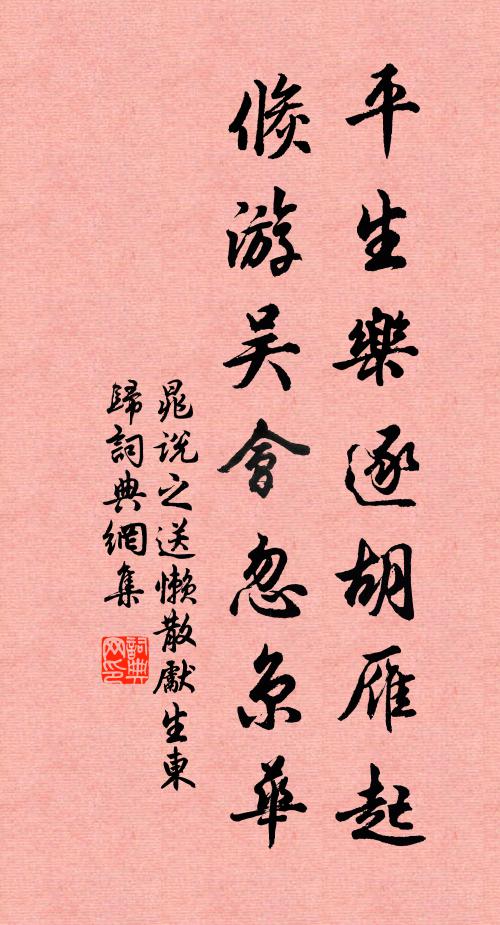 平生樂逐胡雁起
倏游吴會忽京華
晁説之送懶散獻生東
歸詞典網集
詞典网印